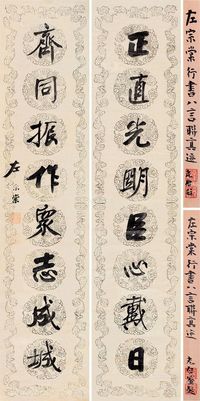 左宗棠行書八言聯真迹
左宗棠行書八言聯真迹
正直光明臣心戴日
齊同振作衆志成城
左宗棠